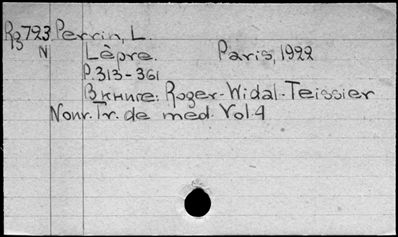 Rз793 Perrin, L.
N Lèpre. Paris, 1922
P. 313-361
В книге: Roger-Widal-Teissier
Nouv. Tr. de med. Vol. 4